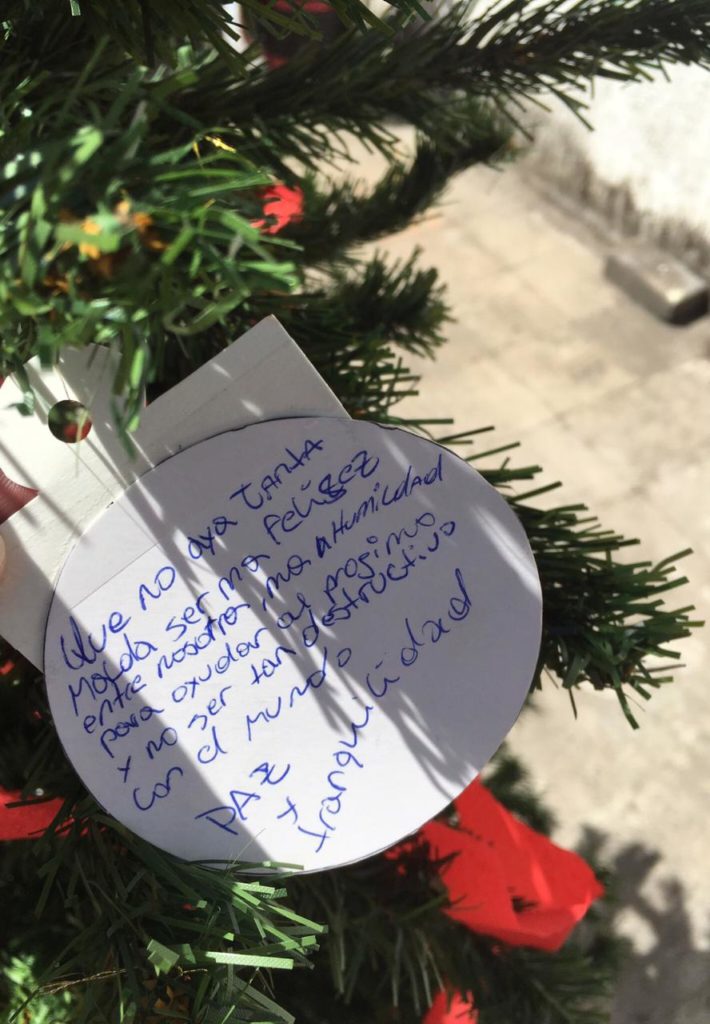 Que no aya tanta
Malda ser ma felisez
entre nosotros, ma humildad
para ayudar al progimo
y no ser tan destructivo
con el mundo
PAZ
y
tranquilidad